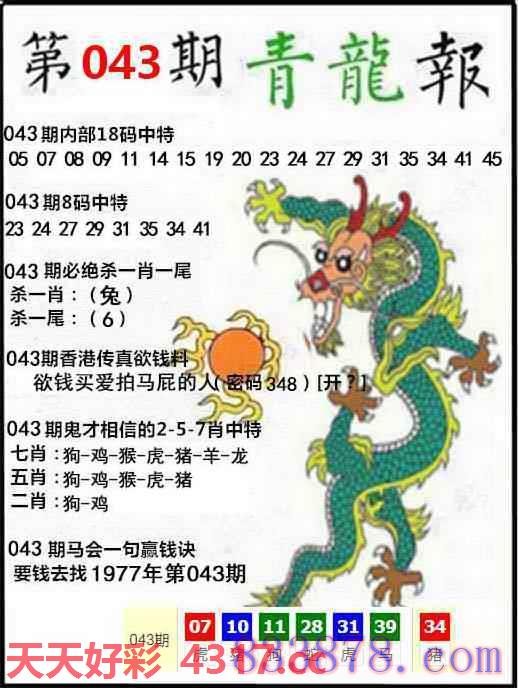 第043期 青龍報
043期内部18码中特
05 07 08 09 11 14 15 19 20 23 24 27 29 31 35 34 41 45
043期8码中特
23 24 27 29 31 35 34 41
043 期必绝杀一肖一尾
杀一肖：（兔）
杀一尾：（6）
043期香港传真欲钱料
欲钱买爱拍马屁的人(密码348)[开?]
043期鬼才相信的2-5-7肖中特
七肖：狗-鸡-猴-虎-猪-羊-龙
五肖：狗-鸡-猴-虎-猪
二肖：狗-鸡
043 期马会一句赢钱诀
要钱去找1977年第043期
043期 07 10 11 28 31 39 34
虎 狗 蛇 虎 马 猪
天天好彩 4317.cc